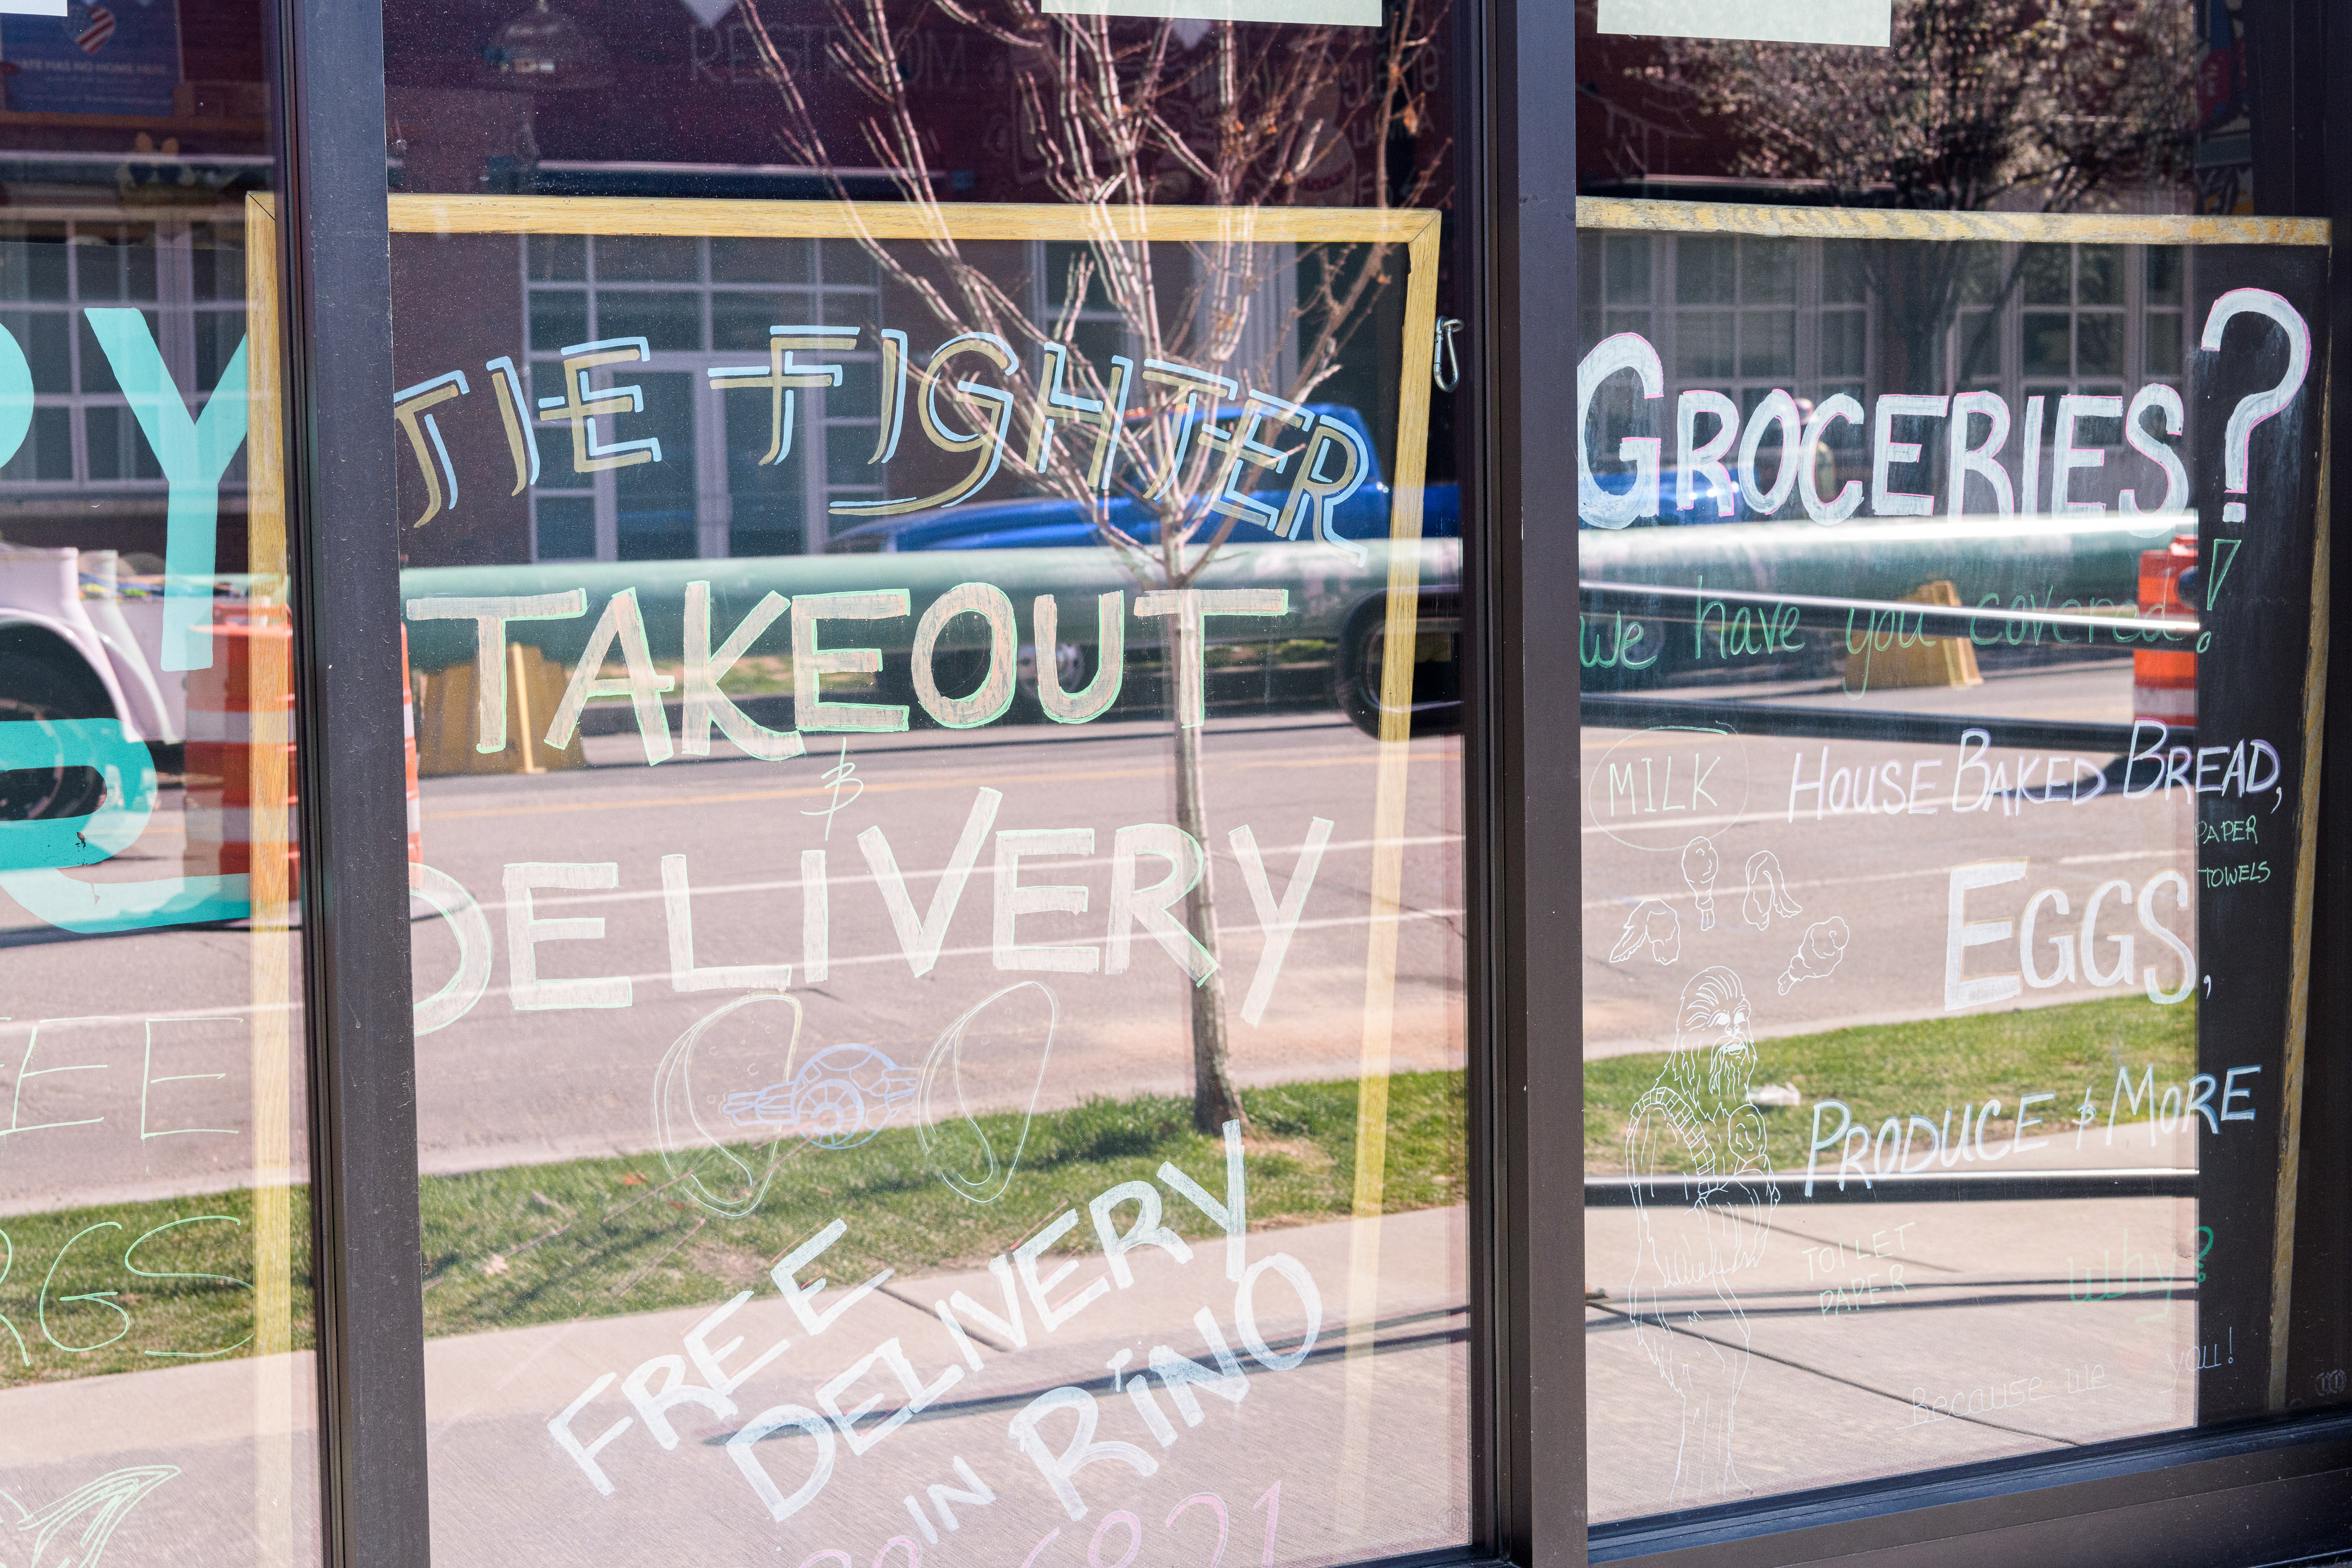 HATE HAS NO HOME HERE
RESTROOM
Y
TIE FIGHTER
TAKEOUT
&
DELIVERY
FREE
DELIVERY
IN RiNO
GROCERIES?
we have you covered!
MILK
HOUSE BAKED BREAD,
PAPER
TOWELS
EGGS,
PRODUCE & MORE
TOILET
PAPER
why?
Because we you!